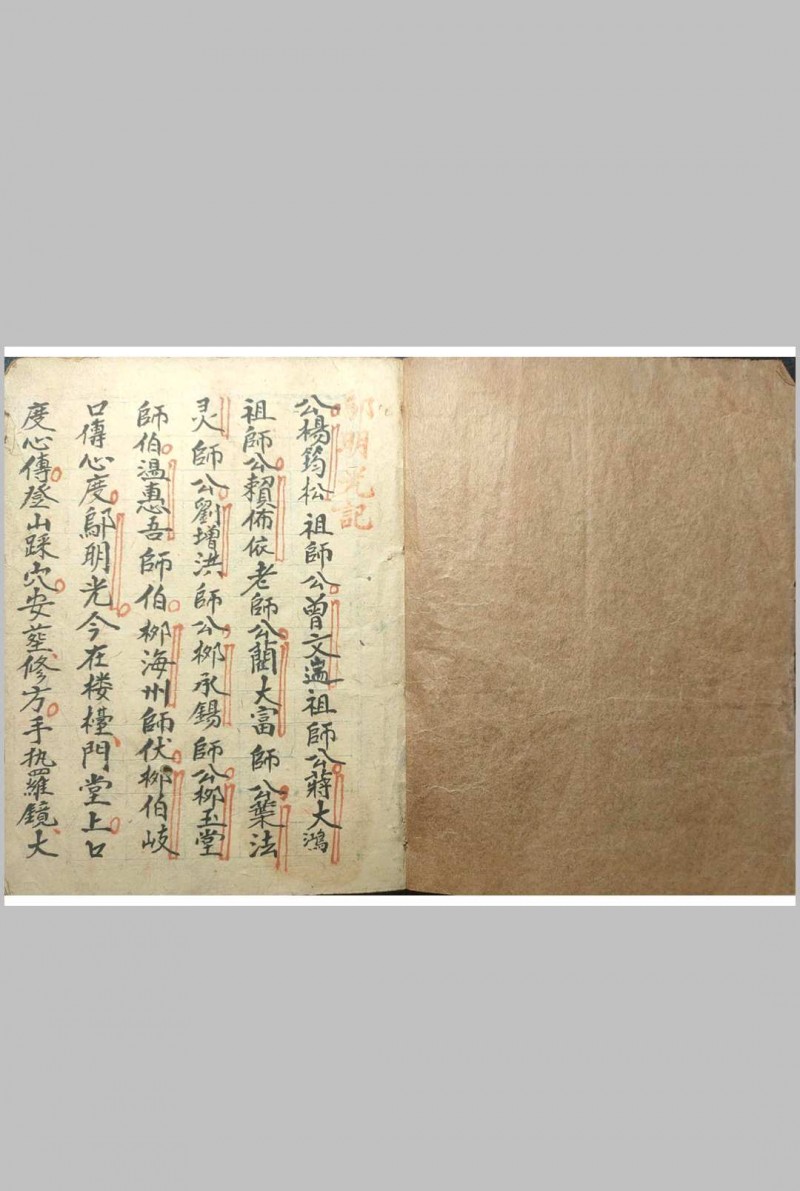 明光記
公楊筠松祖師公曾文遄祖師公蔣大鴻
祖師公賴佈依老師公藺大富師公葉法
灵師公劉增洪師公桞承錫師公桞玉堂
師伯溫惠吾師伯桞海州師伏桞伯岐
口傳心度鄔明光今在楼檯門堂上口
度心傳登山踩穴安塟修方手执羅鏡大